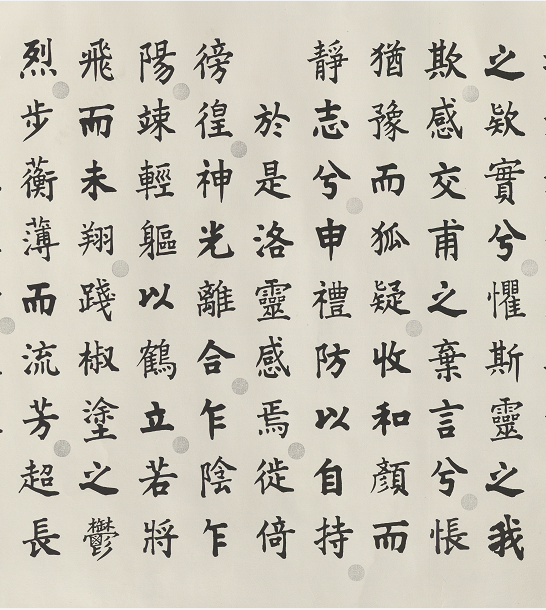 之欵實兮懼斯靈之我
欺感交甫之棄言兮悵
猶豫而狐疑收和顏而
靜志兮申禮防以自持
於是洛靈感焉徙倚
徬徨神光離合乍陰乍
陽竦輕軀以鶴立若將
飛而未翔踐椒塗之鬱
烈步蘅薄而流芳超長